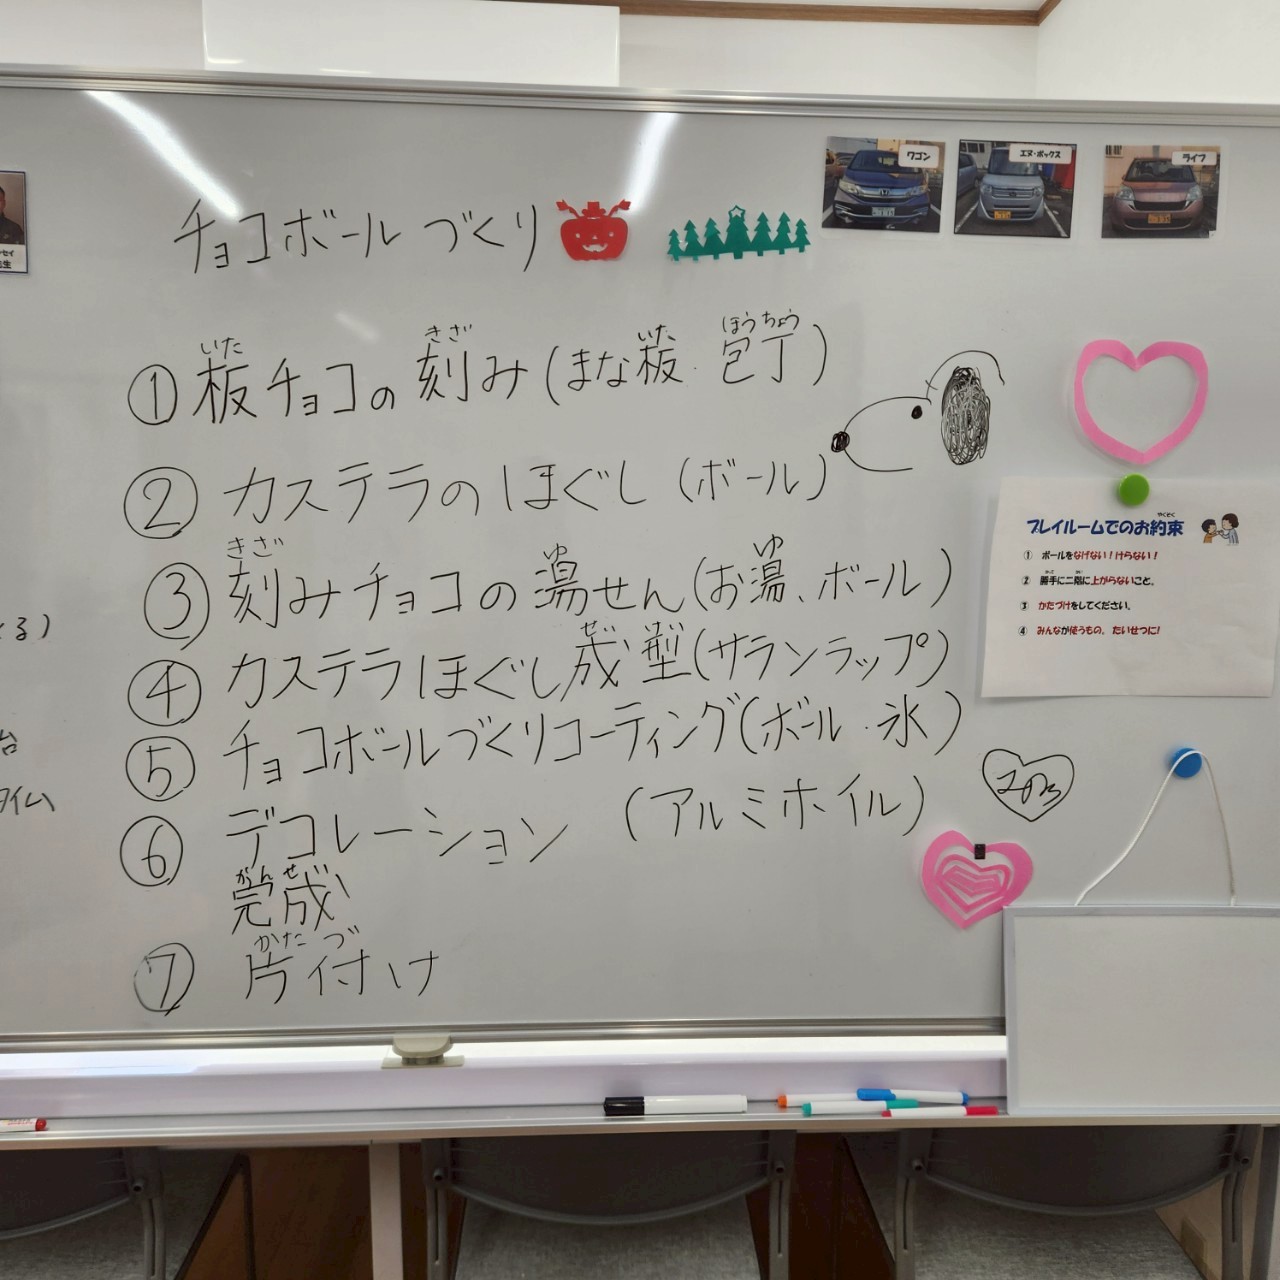 チョコボールづくり
いた きざ いた ほうちょう
① 板チョコの刻み(まな板・包丁)
② カステラのほぐし(ボール)
きざ ゆ ゆ
③ 刻みチョコの湯せん(お湯、ボール)
せい けい
④ カステラほぐし成型(サランラップ)
⑤ チョコボールづくりコーティング(ボール・氷)
⑥ デコレーション (アルミホイル)
かんせい
完成
かた づ
⑦ 片付け
ワゴン
エヌ・ボックス
ライフ
やくそく
プレイルームでのお約束
① ボールをなげない!けらない!
② 勝手に二階に上がらないこと。
③ かたづけをしてください。
④ みんなが使うもの。たいせつに!
セイ
先生
る)
台
タイム